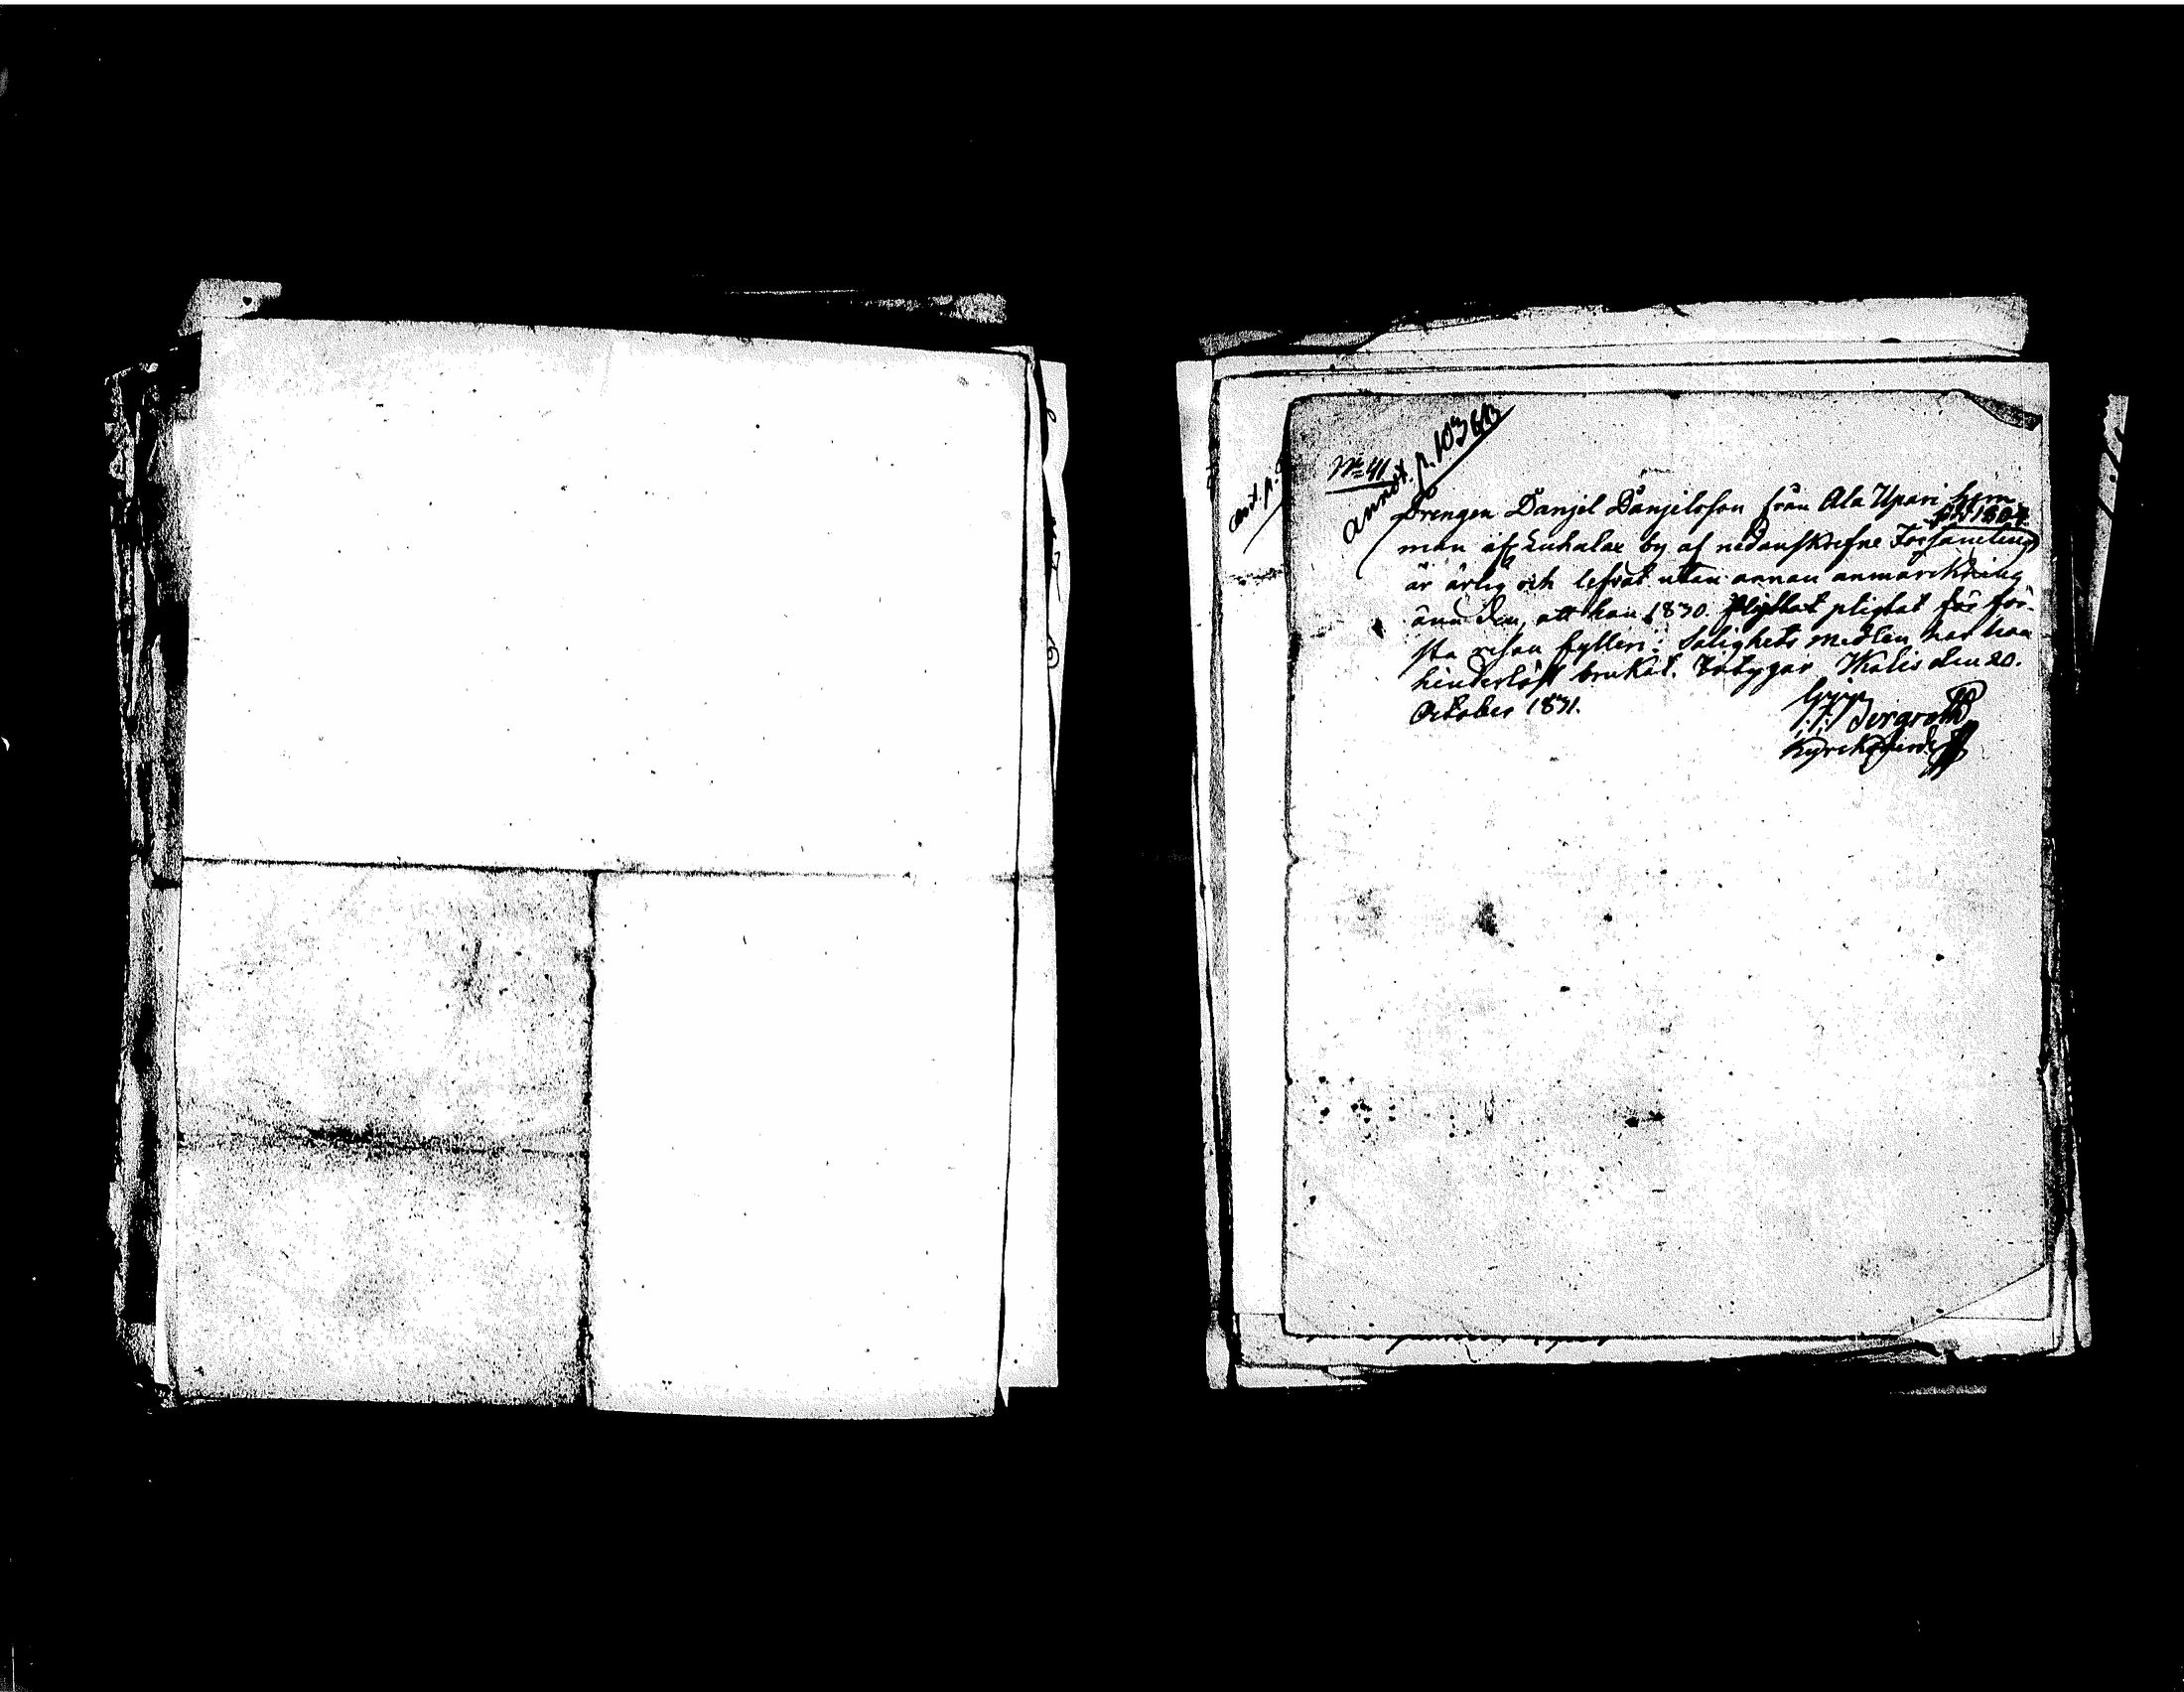 No 41
annot. p. 1036
Drengen Danjel Danjelsson från Ala Upari hem
född 1807.
man af Luhalax by af nedanskrefne Församling
är ärlig och lefvat utan annan anmärckning
änn den, att han 1830. pligtat för för-
sta resan fylleri: Salighets medlen har han
hinderlöst brukat. Intygar Ikalis den 20.
October 1831.
Bergroth
Kyrckoherde